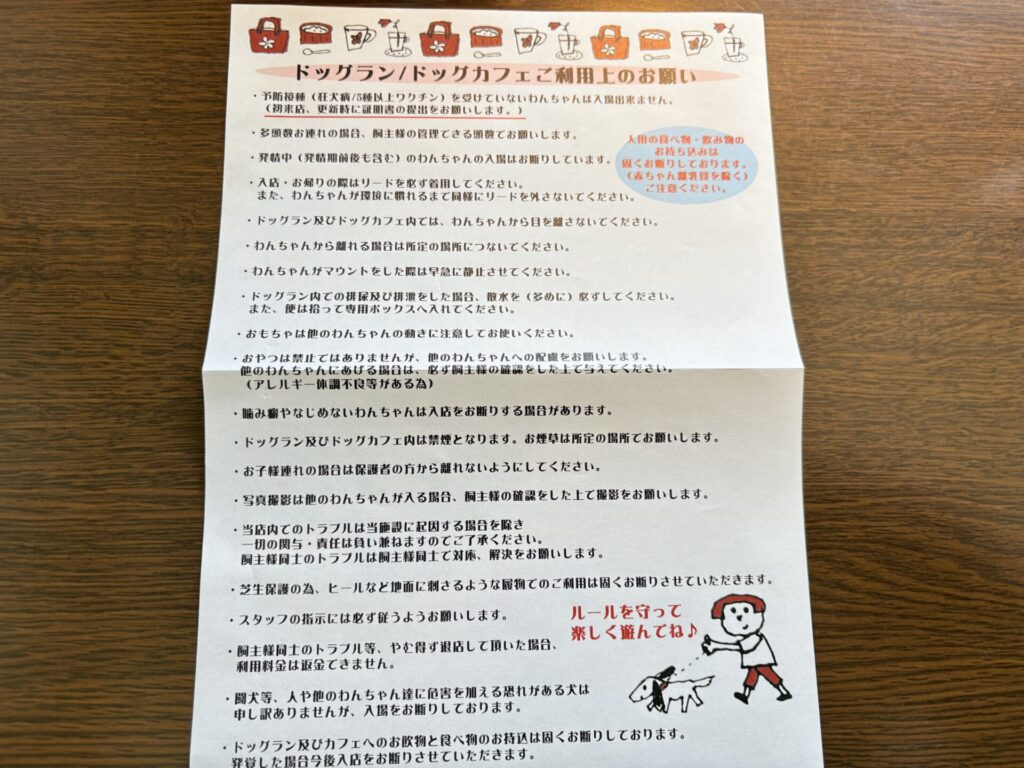 ドッグラン/ドッグカフェご利用上のお願い
・予防接種（狂犬病/5種以上ワクチン）を受けていないわんちゃんは入場出来ません。
（初来店、更新時に証明書の提出をお願いします。）
・多頭数お連れの場合、飼主様の管理できる頭数でお願いします。
・発情中（発情期前後も含む）のわんちゃんの入場はお断りしています。
人用の食べ物・飲み物の
お持ち込みは
固くお断りしております。
（赤ちゃん離乳食を除く）
ご注意ください。
・入店・お帰りの際はリードを必ず着用してください。
また、わんちゃんが環境に慣れるまで同様にリードを外さないでください。
・ドッグラン及びドッグカフェ内では、わんちゃんから目を離さないでください。
・わんちゃんから離れる場合は所定の場所につないでください。
・わんちゃんがマウントをした際は早急に静止させてください。
・ドッグラン内での排尿及び排泄をした場合、散水を（多めに）必ずしてください。
また、便は拾って専用ボックスへ入れてください。
・おもちゃは他のわんちゃんの動きに注意してお使いください。
・おやつは禁止ではありませんが、他のわんちゃんへの配慮をお願いします。
他のわんちゃんにあげる場合は、必ず飼主様の確認をした上で与えてください。
（アレルギー体調不良等がある為）
・噛み癖やなじめないわんちゃんは入店をお断りする場合があります。
・ドッグラン及びドッグカフェ内は禁煙となります。お煙草は所定の場所でお願いします。
・お子様連れの場合は保護者の方から離れないようにしてください。
・写真撮影は他のわんちゃんが入る場合、飼主様の確認をした上で撮影をお願いします。
・当店内でのトラブルは当施設に起因する場合を除き
一切の関与・責任は負い兼ねますのでご了承ください。
飼主様同士のトラブルは飼主様同士で対応、解決をお願いします。
・芝生保護の為、ヒールなど地面に刺さるような履物でのご利用は固くお断りさせていただきます。
・スタッフの指示には必ず従うようお願いします。
ルールを守って
楽しく遊んでね♪
・飼主様同士のトラブル等、やむ得ず退店して頂いた場合、
利用料金は返金できません。
・闘犬等、人や他のわんちゃん達に危害を加える恐れがある犬は
申し訳ありませんが、入場をお断りしております。
・ドッグラン及びカフェへのお飲物と食べ物のお持込は固くお断りしております。
発覚した場合今後入店をお断りさせていただきます。